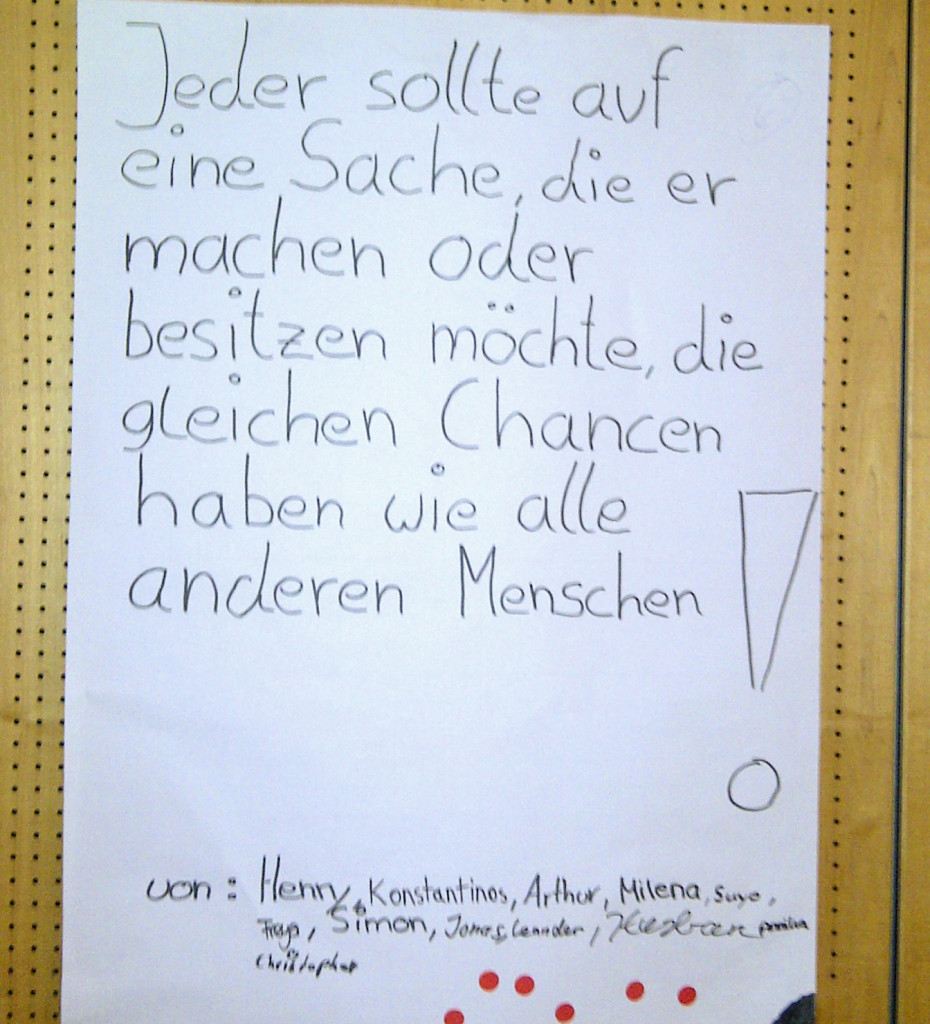 Jeder sollte auf
eine Sache, die er
machen oder
besitzen möchte, die
gleichen Chancen
haben wie alle
anderen Menschen!
von: Henry, Konstantinos, Arthur, Milena,
Simon, Leander,
Christopher